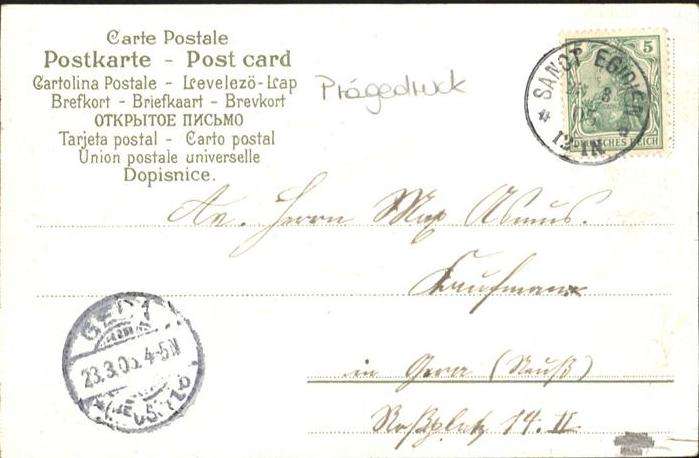 Carte Postale
Postkarte - Post card
Cartolina Postale - Levelezö-Lap
Brefkort - Briefkaart - Brevkort
ОТКРЫТОЕ ПИСЬМО
Tarjeta postal - Carto postal
Union postale universelle
Dopisnice.
Prägedruck
5
DEUTSCHES REICH
SANCT EGIDIEN
8
12-1N.
An Herrn Max Asmus.
Kaufmann
in Gera (Reuß)
Roßplatz 14. II
GERA
23.3.05. 4-5N